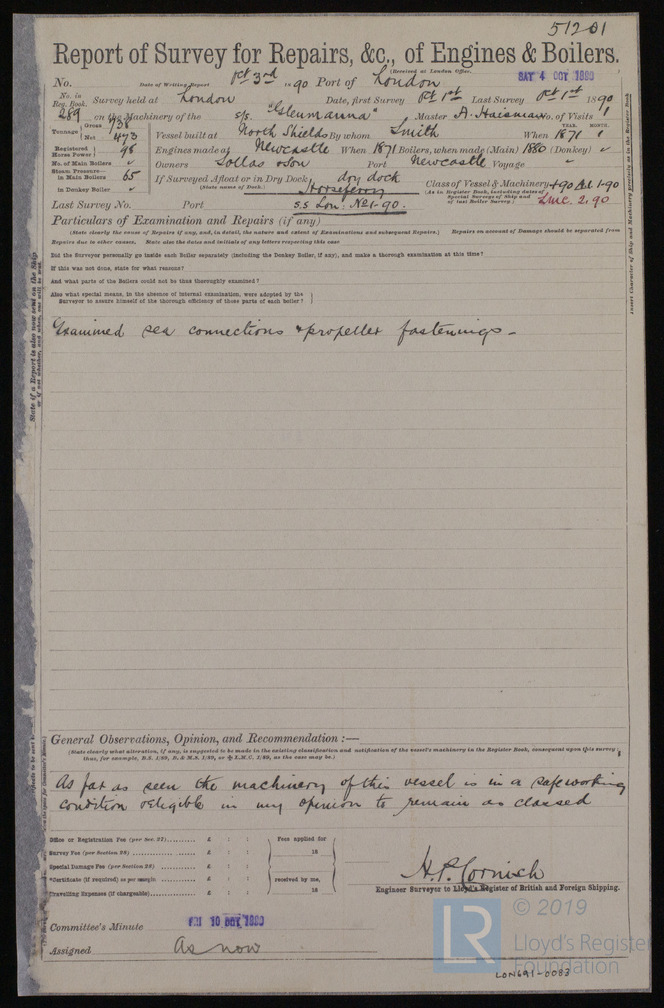 51201
Report of Survey for Repairs, &c., of Engines & Boilers.
(Received at London Office,
No. Date of Writing Report Oct 3rd 1890 Port of London SAT 4 OCT 1890
No. in Reg. Book. Survey held at London Date, first Survey Oct 1st Last Survey Oct 1st 1890
269 on the Machinery of the s/s. "Glenmanna" Master A. No. of Visits 1
Tonnage Gross 738 Net 473 Vessel built at North Shields By whom Smith When YEAR. 1871 MONTH.
Registered Horse Power 98 Engines made at Newcastle When 1871 Boilers, when made (Main) 1880 (Donkey) "
No. of Main Boilers " Owners Sollas & Son Port Newcastle Voyage "
Steam Pressure— in Main Boilers 65 If Surveyed Afloat or in Dry Dock dry dock Class of Vessel & Machinery
in Donkey Boiler " (State name of Dock.) Horseferry (As in Register Book, including dates of Special Surveys of Ship and of last Boiler Survey.) LMC. 2,90
Last Survey No. Port S.S Lon: No1-90.
Particulars of Examination and Repairs (if any)
(State clearly the cause of Repairs if any, and, in detail, the nature and extent of Examinations and subsequent Repairs.) Repairs on account of Damage should be separated from
Repairs due to other causes. State also the dates and initials of any letters respecting this case
Did the Surveyor personally go inside each Boiler separately (including the Donkey Boiler, if any), and make a thorough examination at this time?
If this was not done, state for what reasons?
And what parts of the Boilers could not be thus thoroughly examined?
Also what special means, in the absence of internal examination, were adopted by the
Surveyor to assure himself of the thorough efficiency of those parts of each boiler?
Examined sea connections & propeller fastenings -
State if a Report is also now sent on the Ship
Insert Character of Ship and Machinery precisely as in the Register Book
General Observations, Opinion, and Recommendation :—
(State clearly what alteration, if any, is suggested to be made in the existing classification and notification of the vessel's machinery in the Register Book, consequent upon this survey;
thus, for example, B.S. 1/89, B. & M.S. 1/89, or L.M.C. 1/89, as the case may be.)
As far as seen the machinery of this vessel is in a safe working
condition & eligible in my opinion to remain as classed
Office or Registration Fee (per Sec. 27) £ : : Fees applied for
Survey Fee (per Section 28) £ : : 18
Special Damage Fee (per Section 28) £ : :
*Certificate (if required) as per margin £ : : received by me,
Travelling Expenses (if chargeable) £ : : 18
H. P. Cornish
Engineer Surveyor to Lloyd's Register of British and Foreign Shipping.
Committee's Minute FRI 10 OCT 1890
Assigned As now
LR © 2019
Lloyd's Register
Foundation
LON691-0083